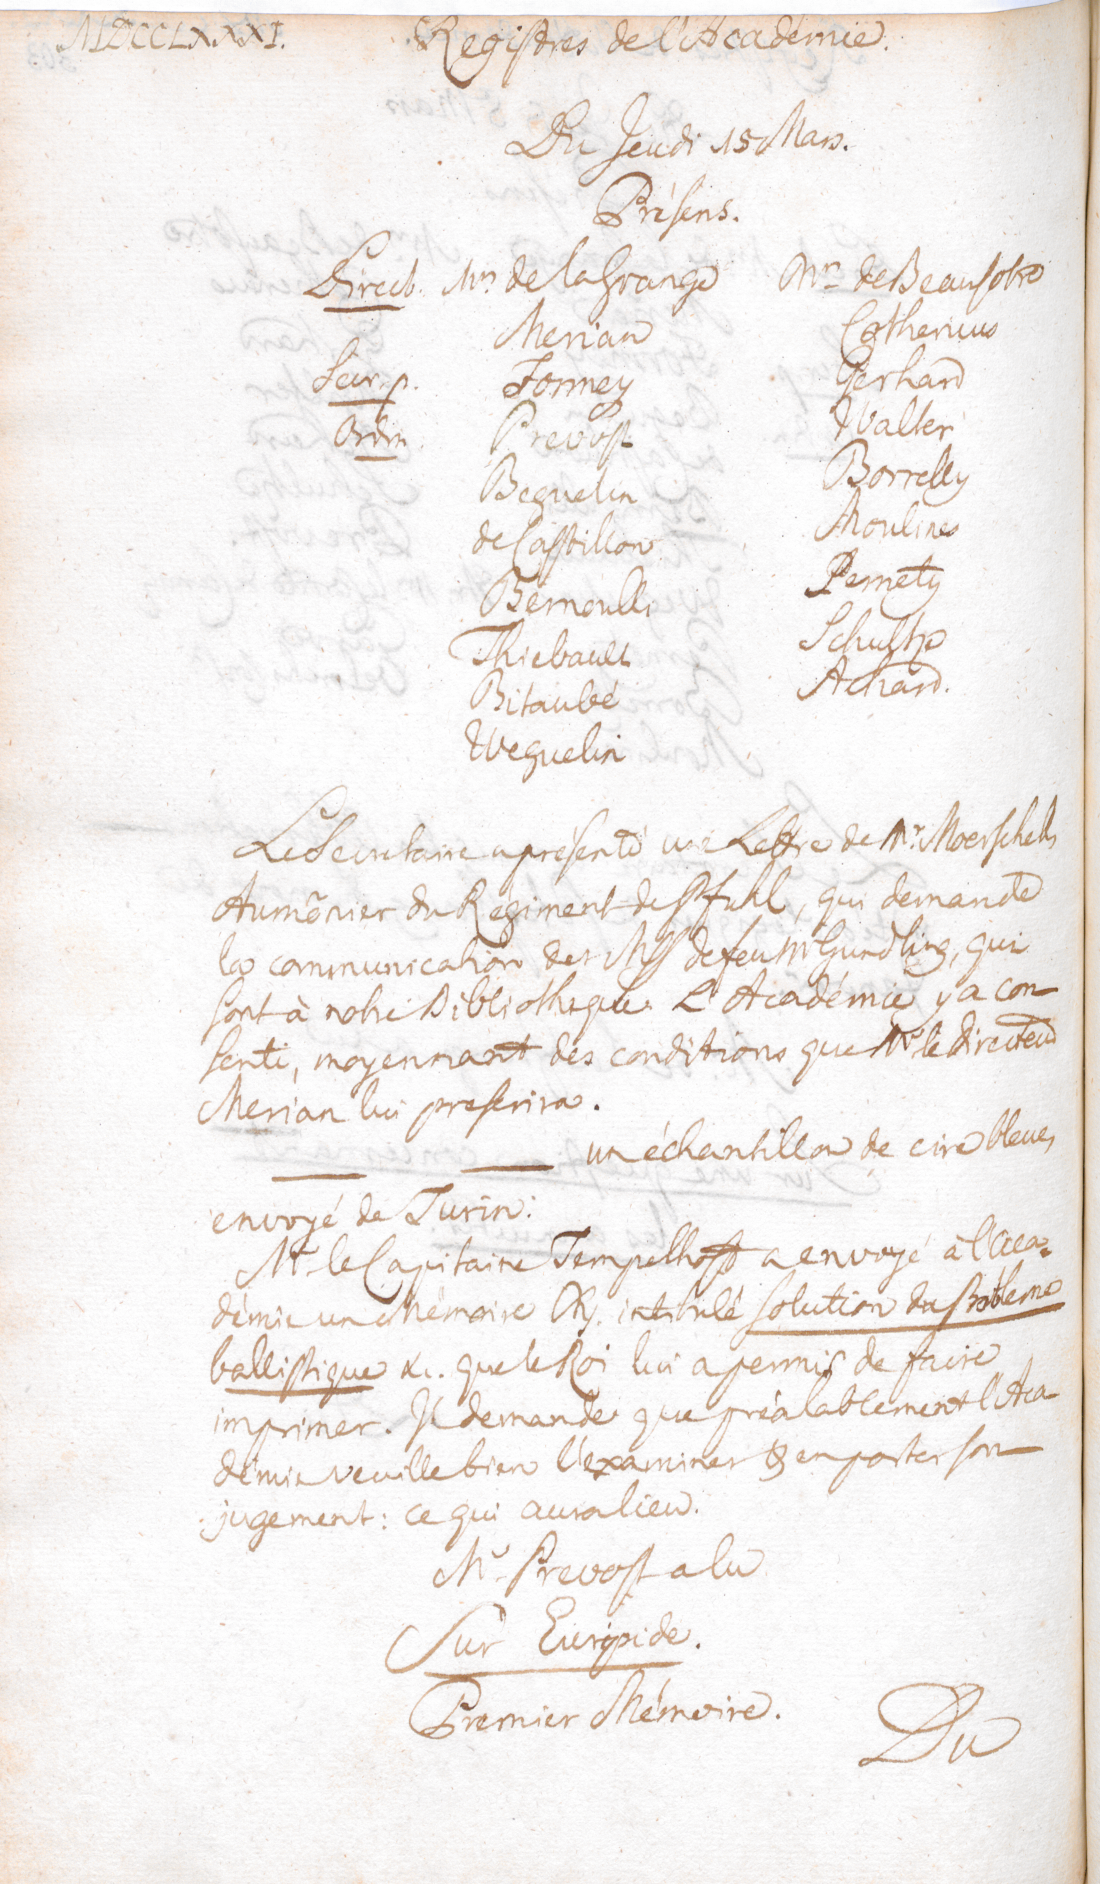 MDCCLXXXI. Registres de l'Académie.
Du Jeudi 15 Mars.
Présens.
Direct. Mrs de la Grange Mrs de Beausobre
Merian Cothenius
Secr. p. Formey Gerhard
Ordin. Prevost Walter
Beguelin Borrelly
de Castillon Moulines
Bernoulli Pernety
Thiebault Schultze
Bitaubé Achard.
Weguelin
Le Secretaire a présenté une Lettre de Mr. Moerschels
Aumônier du Régiment de Pfuhl, qui demande
la communication des Mss de feu Mr Gundling, qui
sont à notre Bibliotheque. L'Académie y a con-
senti, moyennant des conditions que Mr. le Directeur
Merian lui prescrira.
un échantillon de cire bleue,
envoyé de Turin.
Mr. le Capitaine Tempelhoff a envoyé à l'Aca-
démie un Mémoire intitulé Solution du Probleme
ballistique &c. que le Roi lui a permis de faire
imprimer. Il demande que préalablement l'Aca-
démie veuille bien l'examiner & en porter son
jugement: ce qui aura lieu.
Mr. Prevost a lu
Sur Euripide.
Premier Mémoire.
Du